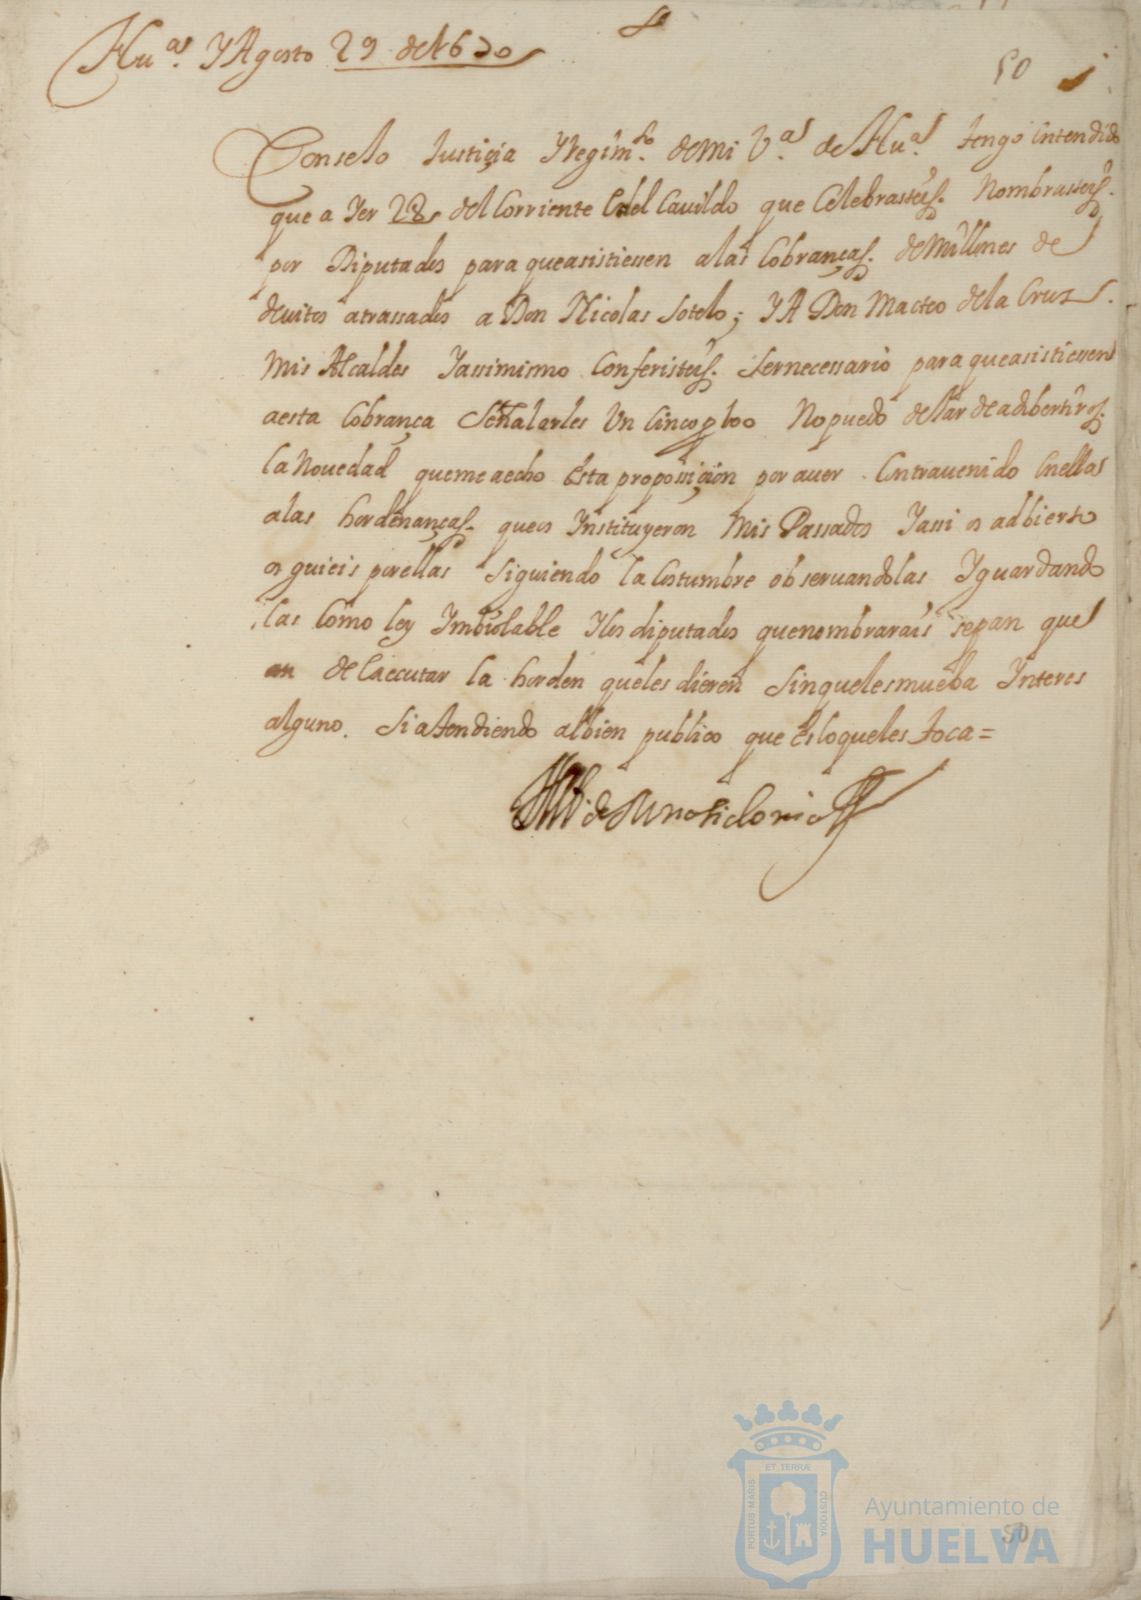 Huª. Y Agosto 29 de 1670
50
Consejo Justiçia Y Regimto. de mi Vª. de Huª. tengo intendido
que a Yer 28 del Corriente En el Cavildo que Celebrasteis. Nombrasteis.
por Diputados para que asistiessen a las Cobranças. de Millones de
devitos atrassados a Don Nicolas Sotelo; Y A Don Matteo de la Cruz.
Mis Alcaldes Y assimismo Conferisteis. Ser necessario para que asistiessen
a esta Cobrança Señalarles Un Cinco p 100 No puedo dejar de adibertiros.
la Novedad que me a echo Esta proposiçion por aver Contravenido En ellas
a las hordenanças. que os Ynstituyeron Mis Passados Y assi os adbierto
os guieis por ellas Siguiendo la Costumbre observandolas Y guardando
las Como ley Ymbiolable Y los diputados que nombrarais sepan que
an de Ejecutar la horden que les dieren Sin que les mueba Ynteres
alguno. Si atendiendo al bien publico que es lo que les toca =
de Medina Sidonia
Ayuntamiento de
HUELVA
PORTUS MARIS
ET TERRÆ
CUSTODIA
50